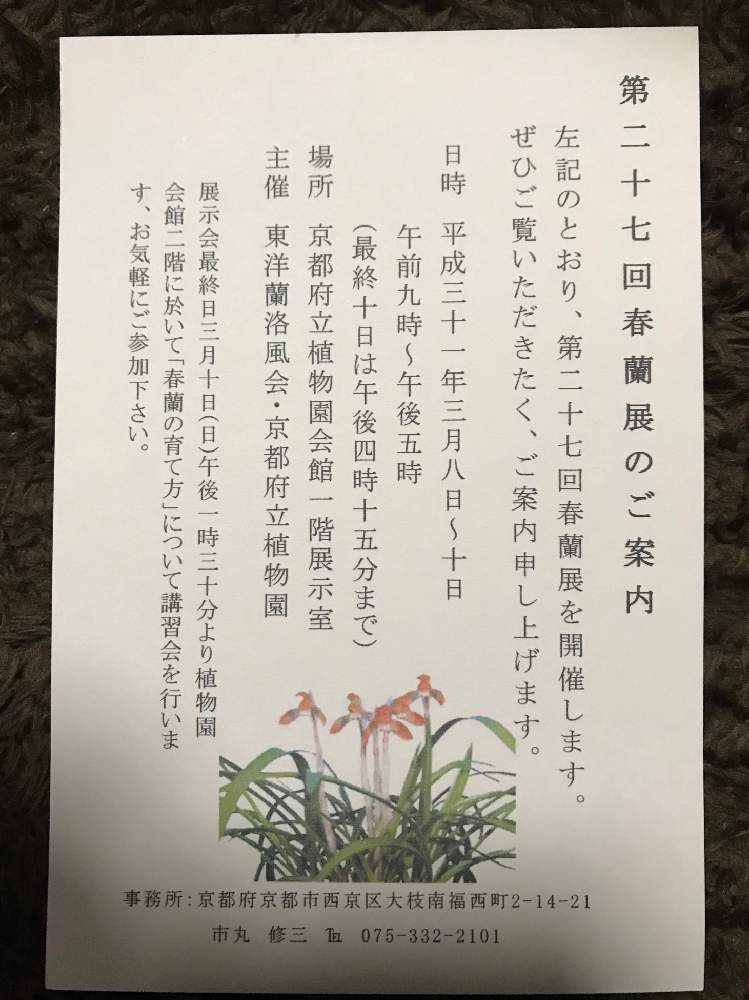 第二十七回春蘭展のご案内
左記のとおり、第二十七回春蘭展を開催します。
ぜひご覧いただきたく、ご案内申し上げます。
日時　平成三十一年三月八日～十日
午前九時～午後五時
(最終十日は午後四時十五分まで)
場所　京都府立植物園会館一階展示室
主催　東洋蘭洛風会・京都府立植物園
展示会最終日三月十日(日)午後一時三十分より植物園
会館二階に於いて「春蘭の育て方」について講習会を行いま
す、お気軽にご参加下さい。
事務所:京都府京都市西京区大枝南福西町2-14-21
市丸　修三　℡　075-332-2101